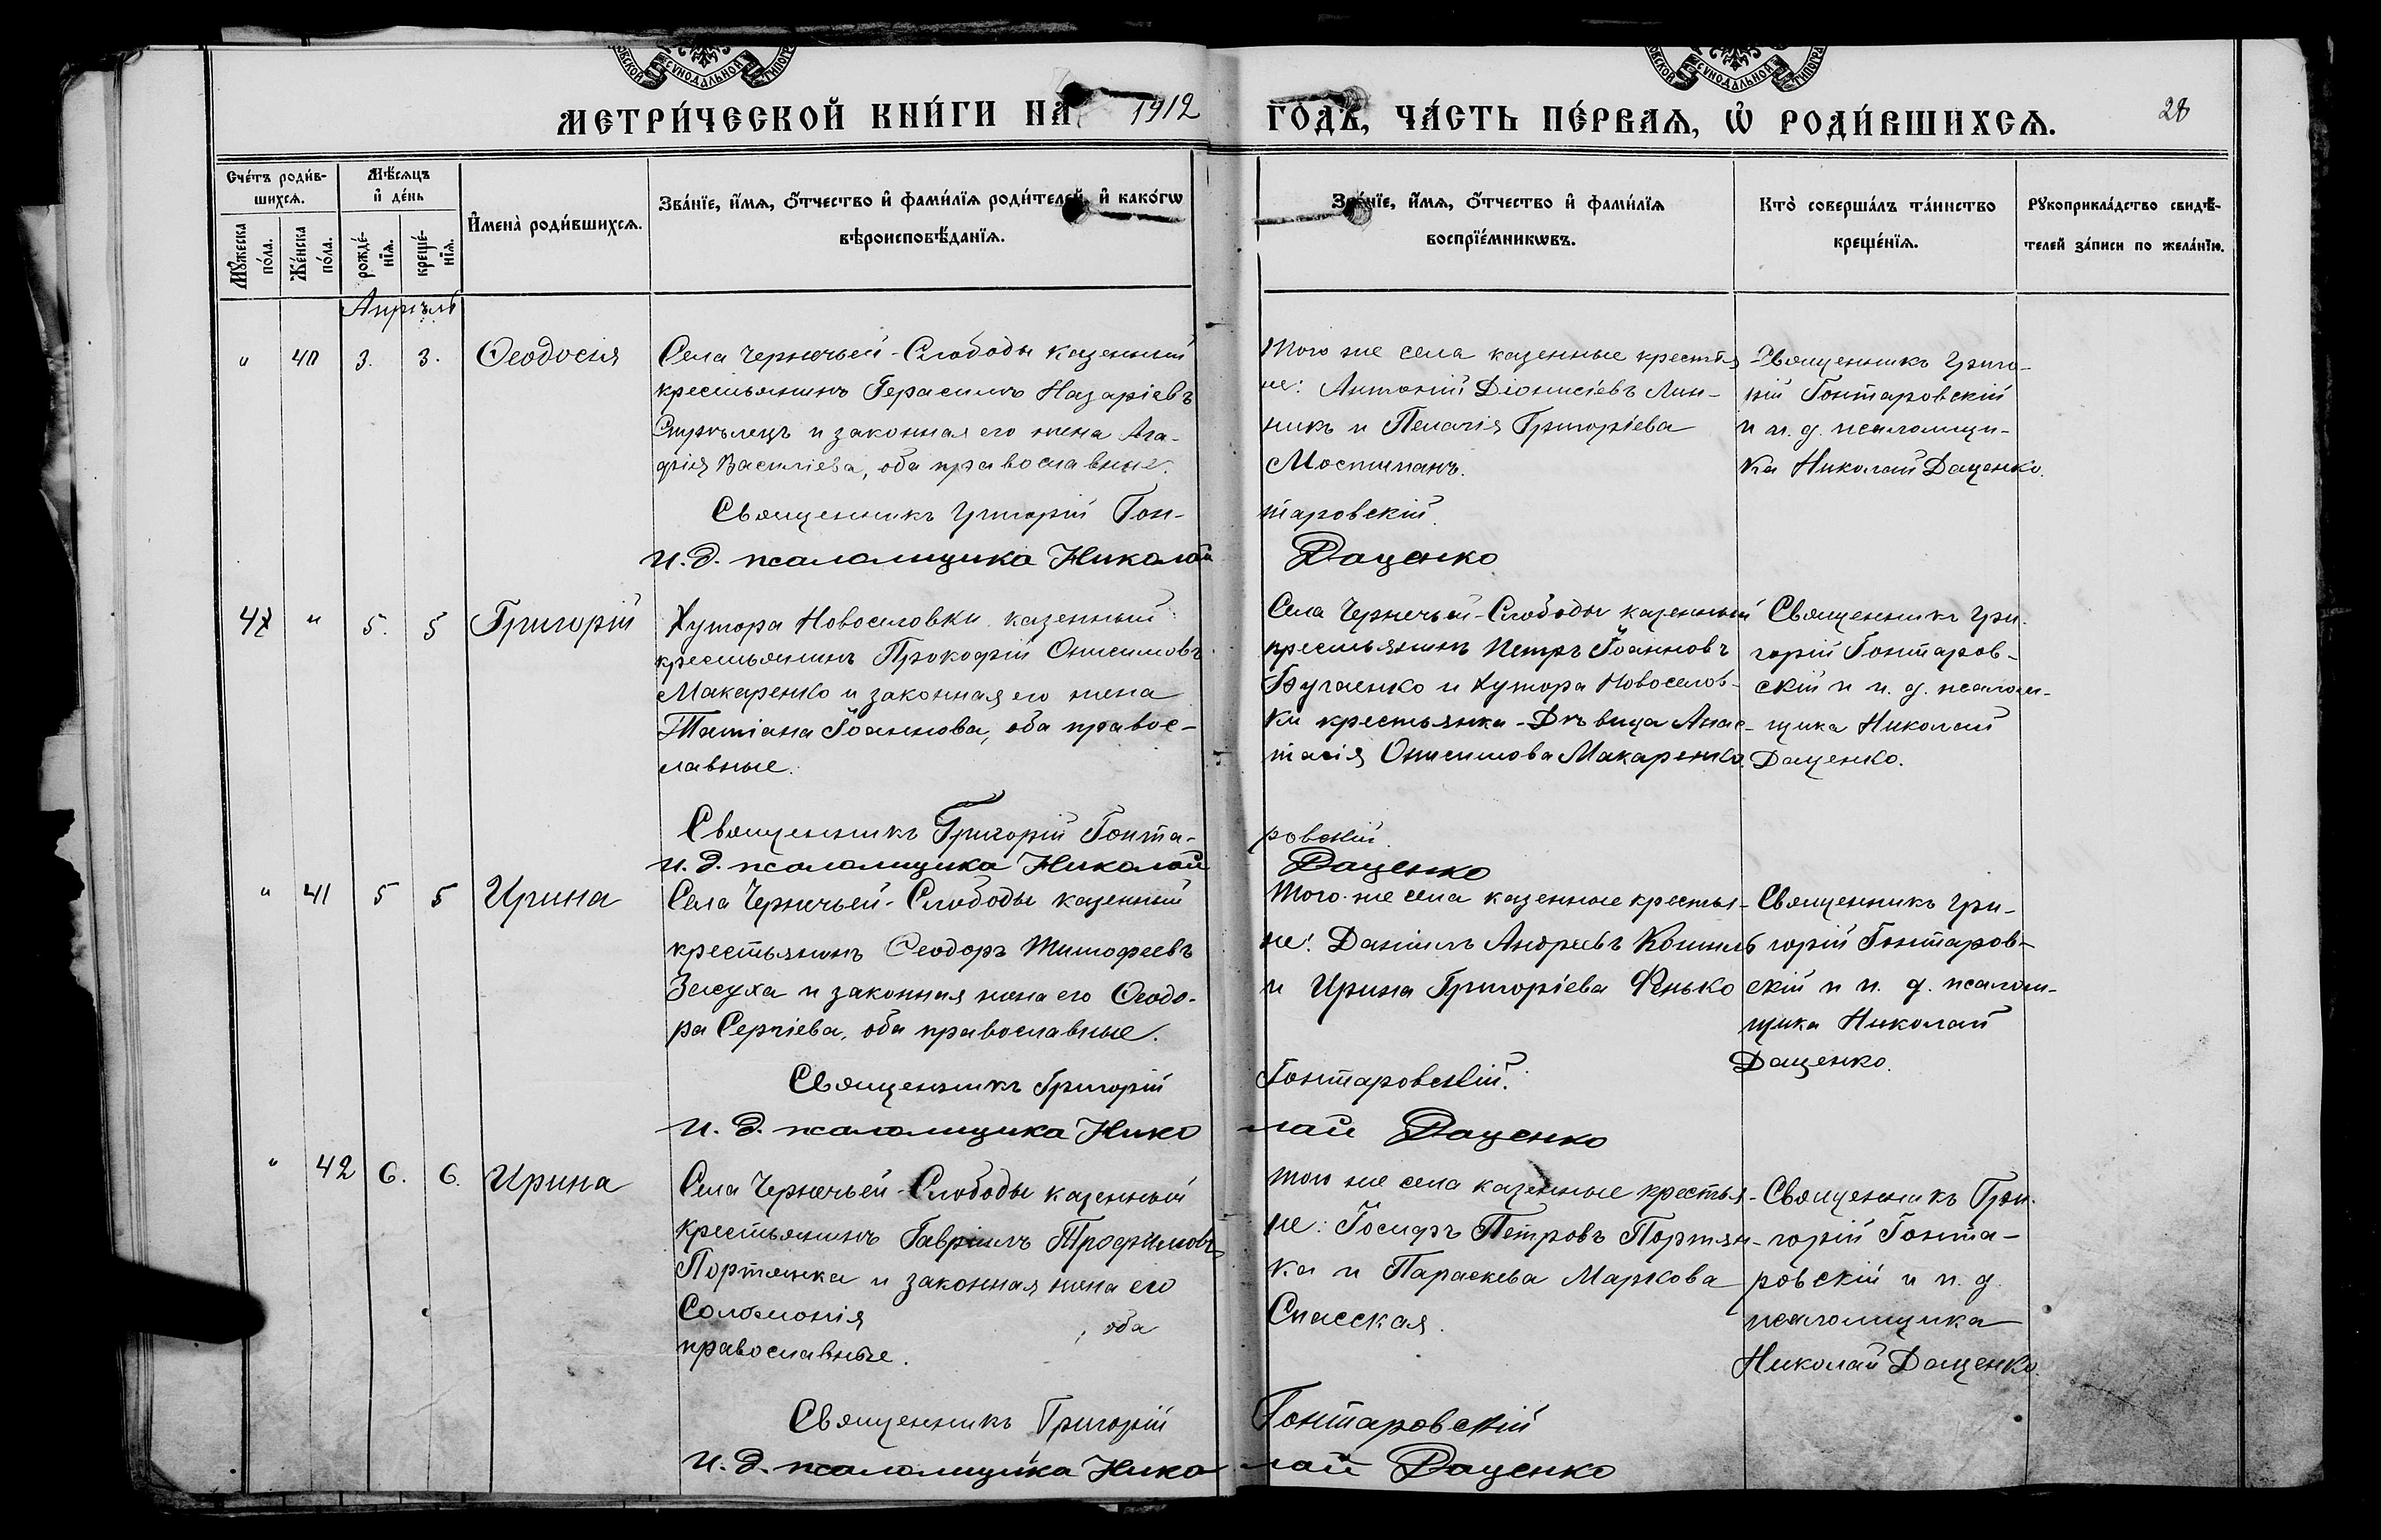 МЕТРИ́ЧЕСКОЙ КНИ́ГИ НА 1912 ГО́ДЪ, ЧА́СТЬ ПЕ́РВАѦ, Ѡ҆ РОДИ́ВШИХСѦ. 28
Сче́тъ роди́в-
шихсѧ.
Мѣ́сяцъ
и҆ де́нь
Мꙋ́жеска по́ла.
Же́нска по́ла.
рожде́-нїѧ.
креще́-нїѧ.
И҆мена̀ роди́вшихсѧ.
Зва́нїе, и҆́мѧ, ѻ҆́тчество и҆ фами́лїѧ роди́телей, и҆ како́гѡ
вѣроисповѣ́данїѧ.
Зва́нїе, и҆́мѧ, ѻ҆́тчество и҆ фами́лїѧ
воспрїе́мникѡвъ.
Кто̀ соверша́лъ та́инство
креще́нїѧ.
Рꙋкоприкла́дство свидѣ́-
телей за́писи по жела́нїю.
Апрѣль
" 40 3. 3. Ѳеодосія
Села Чернечьей-Слободы казенный
крестьянинъ Герасимъ Назаріевъ
и законная его жена Ага-
фія Василіева, оба православные.
Того же села казенные крестья
не: Антоній Діонисіевъ Лин-
никъ и Пелагія Григоріева
Мостипанъ.
Священникъ Григо-
рій Гонтаровскій
и и. д. псаломщи-
ка Николай Даценко.
Священникъ Григорій Гон-
таровскій.
И.д. псаломщика Николай
Даценко
47 " 5. 5 Григорій
Хутора Новоселовки казенный
крестьянинъ Прокофій Онисимовъ
Макаренко и законная его жена
Татіана Іоаннова, оба правос-
лавные.
Села Чернечьей-Слободы казенный
крестьянинъ Петръ Іоанновъ
Бугаенко и хутора Новоселов-
ки крестьянка-Дѣвица Анас-
тасія Онисимова Макаренко.
Священникъ Гри-
горій Гонтаров-
скій и и. д. псалом-
щика Николай
Даценко.
Священникъ Григорій Гонта-
ровскій.
И.д. псаломщика Николай
Даценко
" 41 5 5 Ирина
Села Чернечьей-Слободы казенный
крестьянинъ Ѳеодоръ Тимофеевъ
Засуха и законная жена его Ѳеодо-
ра Сергіева, оба православные.
Того-же села казенные крестья-
не: Даніилъ Андреевъ Коваль
и Ирина Григоріева Фенько
Священникъ Гри-
горій Гонтаров-
скій и и. д. псалом-
щика Николай
Даценко.
Священникъ Григорій
Гонтаровскій.
И.д. псаломщика Нико
лай Даценко
" 42 6. 6. Ирина
Села Чернечьей-Слободы казенный
крестьянинъ Гавріилъ Трофимовъ
Портянка и законная жена его
Соломонія , оба
православные.
Того же села казенные крестья-
не: Іосифъ Петровъ Портян-
ка и Параскева Маркова
Спасская.
Священникъ Гри-
горій Гонта-
ровскій и и. д.
псаломщика
Николай Даценко.
Священникъ Григорій
Гонтаровскій
И.д. псаломщика Нико
лай Даценко